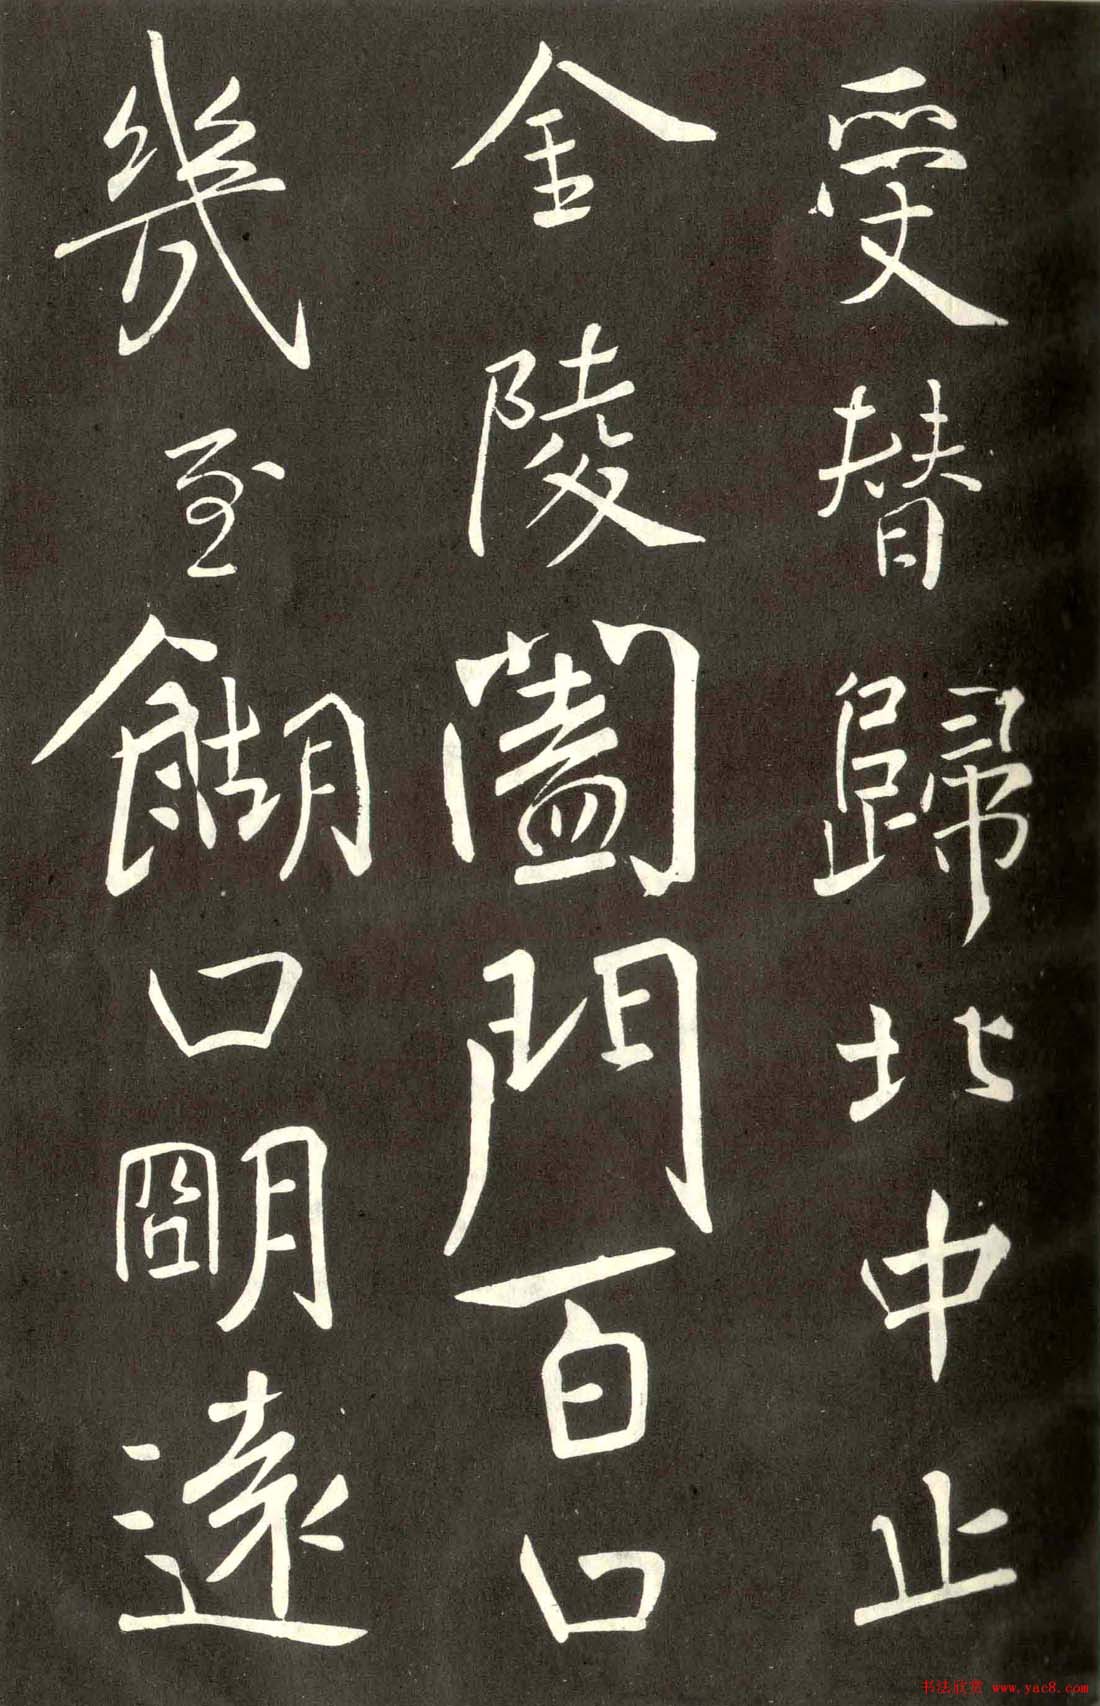 受替歸北中止
金陵闔門百口
幾至餬口明遠
书法欣赏 www.yac8.com